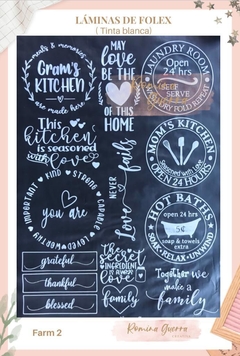 LÁMINAS DE FOLEX
( Tinta blanca)
meals & memories
Gram's
KITCHEN
are made here
MAY
love
BE THE
OF THIS
HOME
LAUNDRY ROOM
Open
24 hrs
SELF
SERVE
WASH DRY FOLD REPEAT
This
kitchen
is seasoned
with love
MOM'S KITCHEN
Seasoned with love
OPEN 24 HOURS
KIND STRONG
CAPABLE
IMPORTANT
you are
Love
NEVER
fails
HOT BATHS
open 24 hrs
5¢
soap & towels
extra
SOAK • RELAX • UNWIND
grateful
thankful
blessed
The
secret
INGREDIENT
IS ALWAYS
love
family
Together we
make a
family
Farm 2
Romina Guerra